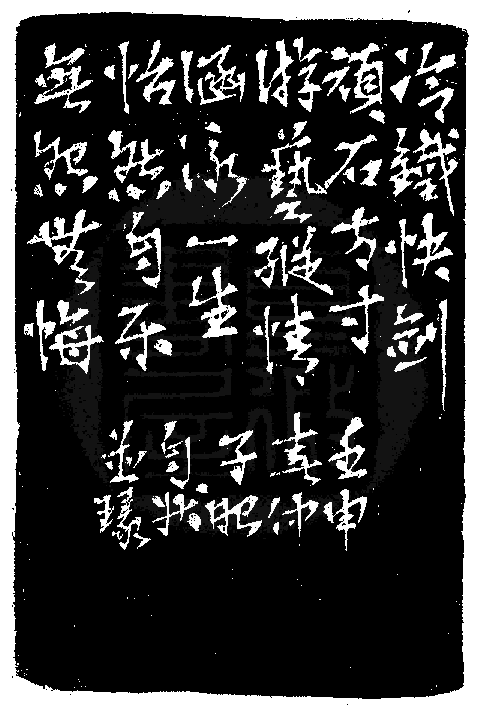 冷鐵快劍
頑石方寸
游藝縱情
涵泳一生
怡然自樂
無怨無悔
壬申
春仲
子肥
自狀
並瑑